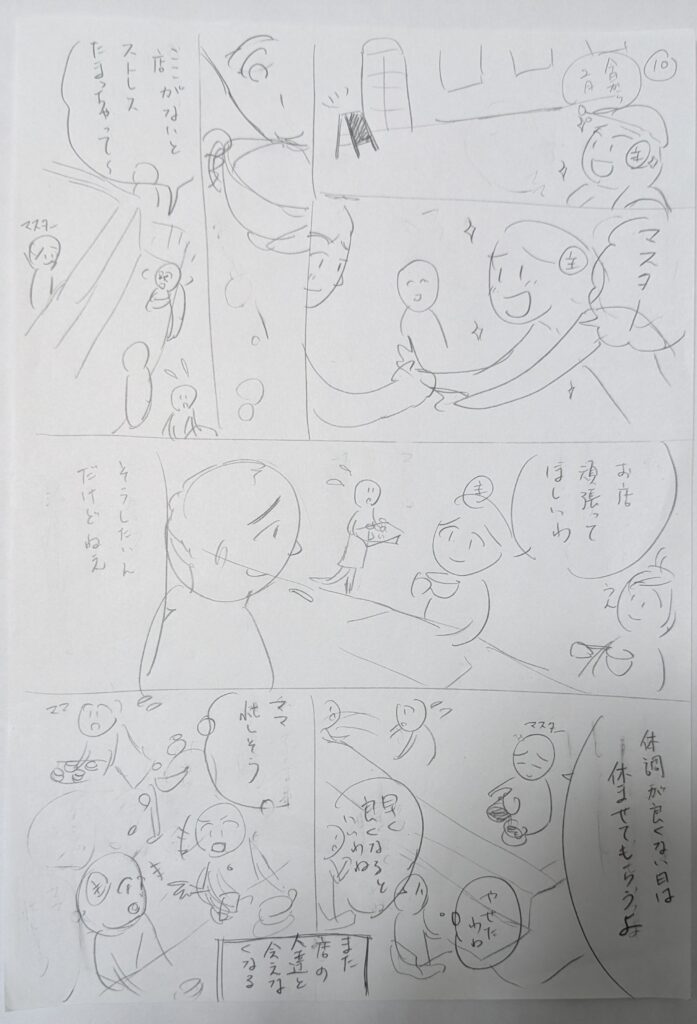 ⑩
2月
主
マスター
主
ここがないと
店
ストレス
たまっちゃって〜
マスター
お店
頑張って
ほしいわ
え
そうしたいん
だけどねえ
体調が良くない日は
休ませてもらうよ
マスター
やせた
わね
早く
良くなると
いいわね
ママ
忙しそう
ママ
また
店の
人達と
会えな
くなる